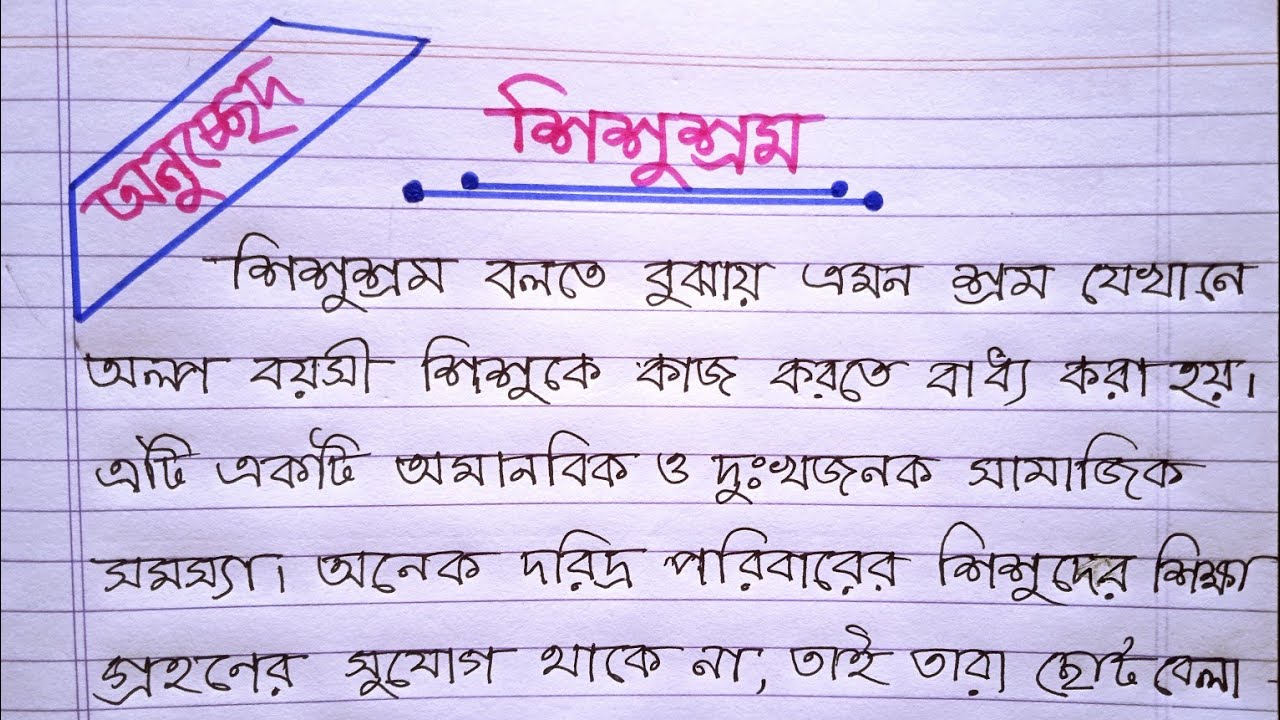 অনুচ্ছেদ
শিশুশ্রম
শিশুশ্রম বলতে বুঝায় এমন শ্রম যেখানে
অল্প বয়সী শিশুকে কাজ করতে বাধ্য করা হয়।
এটি একটি অমানবিক ও দুঃখজনক সামাজিক
সমস্যা। অনেক দরিদ্র পরিবারের শিশুদের শিক্ষা
গ্রহনের সুযোগ থাকে না, তাই তারা ছোট বেলা